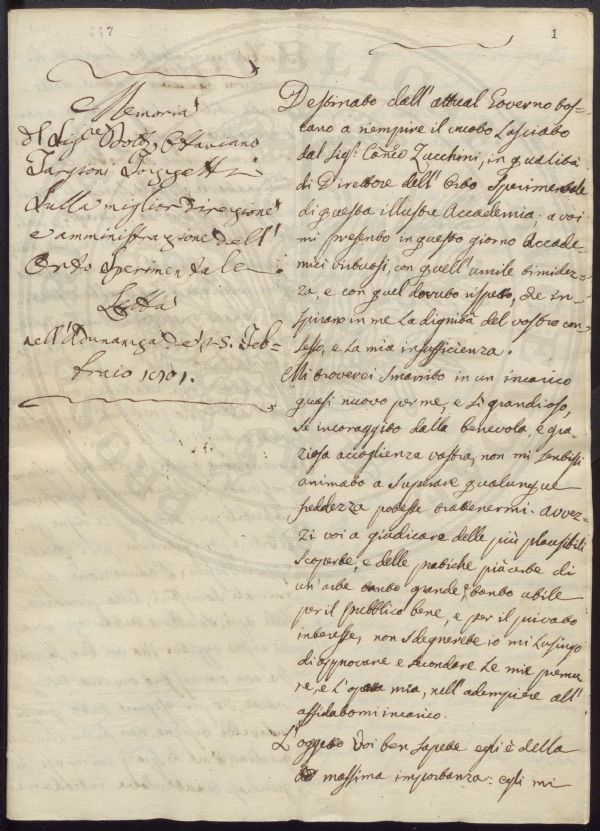 247
1
Memoria
del Sig.re Dott. Ottaviano
Targioni Tozzetti
Sulla miglior direzione
e amministrazione dell'
Orto Sperimentale
Letta
nell'Adunanza de' 25. Feb=
braio 1801.
Destinato dall'attual Governo tos=
cano a riempire il vuoto lasciato
dal Sig.r Can.co Zucchini, in qualità
di Direttore dell'Orto Sperimentale
di questa illustre Accademia, a voi
mi presento in questo giorno Accade=
mici virtuosi, con quell'umile timidez=
za, e con quel dovuto rispetto, che in=
spirano in me la dignità del vostro con=
sesso, e la mia insufficienza.
Mi troverei smarrito in un incarico
quasi nuovo per me, e sì grandioso,
se incoraggito dalla benevola, e gra=
ziosa accoglienza vostra, non mi sentissi
animato a superare qualunque
freddezza potesse trattenermi. Avvez=
zi voi a giudicare delle più plausibili
scoperte, e delle pratiche più certe di
un'arte tanto grande, e tanto utile
per il pubblico bene, e per il privato
interesse, non sdegnerete io mi lusingo
di approvare e secondare le mie premu=
re, e l'opera mia, nell'adempiere all'
affidatomi incarico.
L'oggetto Voi ben sapete egli è della
massima importanza: egli mi